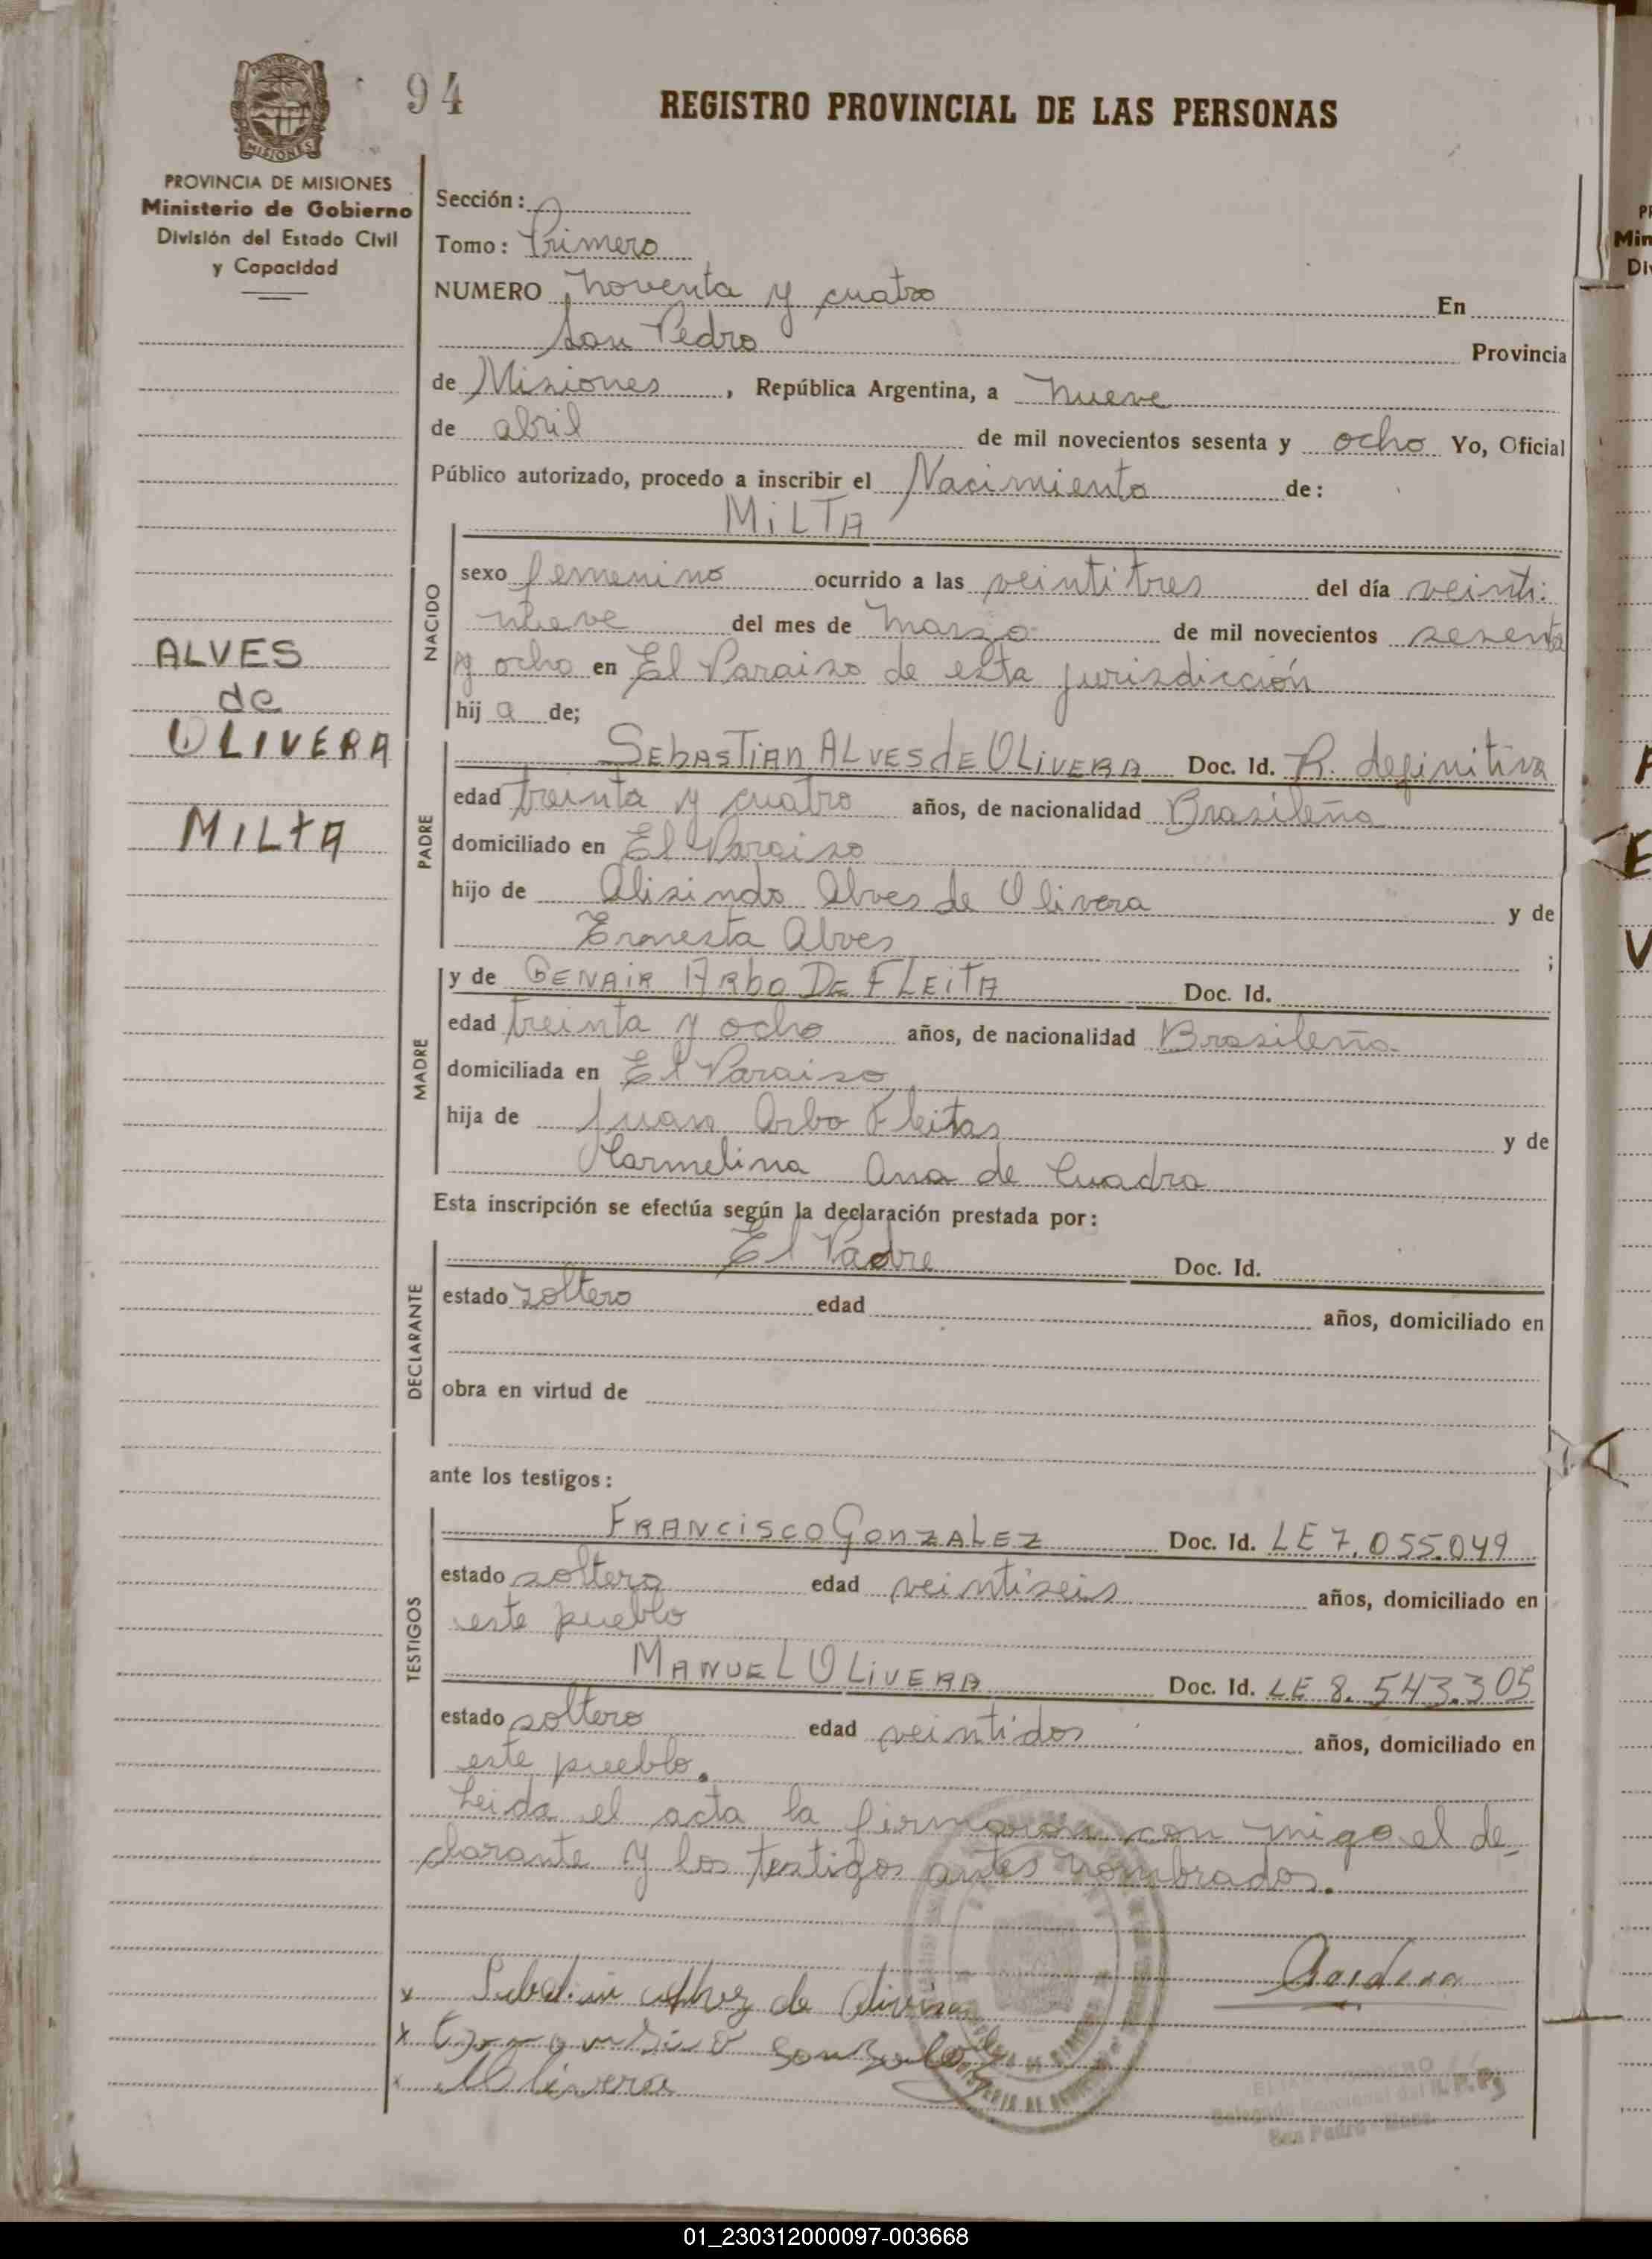 94
REGISTRO PROVINCIAL DE LAS PERSONAS
MISIONES
PROVINCIA DE MISIONES
Ministerio de Gobierno
División del Estado Civil
y Capacidad
ALVES
de
OLIVERA
MILTA
Sección:
Tomo: Primero
NUMERO noventa y cuatro En
San Pedro Provincia
de Misiones, República Argentina, a nueve
de abril de mil novecientos sesenta y ocho Yo, Oficial
Público autorizado, procedo a inscribir el Nacimiento de:
MiLTA
NACIDO
sexo femenino ocurrido a las veintitres del día veinti-
nueve del mes de Marzo de mil novecientos sesenta
y ocho en El Paraiso de esta jurisdicción
hij a de;
PADRE
SEbASTiAN ALVES dE OLiVERA Doc. Id. R. definitiva
edad treinta y cuatro años, de nacionalidad Brasileña
domiciliado en El Paraiso
hijo de Alisindo Alves de Olivera y de
Ernesta Alves ;
MADRE
y de GENAiR ARbO DE FLEiTA Doc. Id.
edad treinta y ocho años, de nacionalidad Brasileña
domiciliada en El Paraiso
hija de Juan Arbo Fleitas y de
Carmelina Ana de Cuadra
Esta inscripción se efectúa según la declaración prestada por:
DECLARANTE
El Padre Doc. Id.
estado soltero edad años, domiciliado en
obra en virtud de
ante los testigos:
TESTIGOS
FRANCiSCO GONZALEZ Doc. Id. LE 7.055.049
estado soltero edad veintiseis años, domiciliado en
este pueblo
MANUEL OLiVERA Doc. Id. LE 8.543.305
estado soltero edad veintidos años, domiciliado en
este pueblo.
Leida el acta la firmaron con migo el de-
clarante y los testigos antes nombrados.
x de
x
x Olivera
Delegado Seccional del R.P.P.
San Pedro - Mnes.
01_230312000097-003668